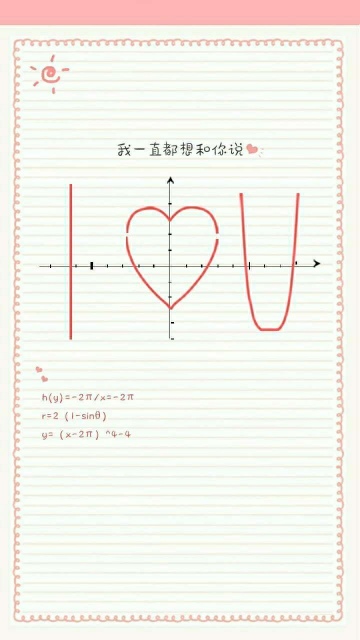 我一直都想和你说
h(y)=-2π/x=-2π
r=2 (1-sinθ)
y= (x-2π) ^4-4